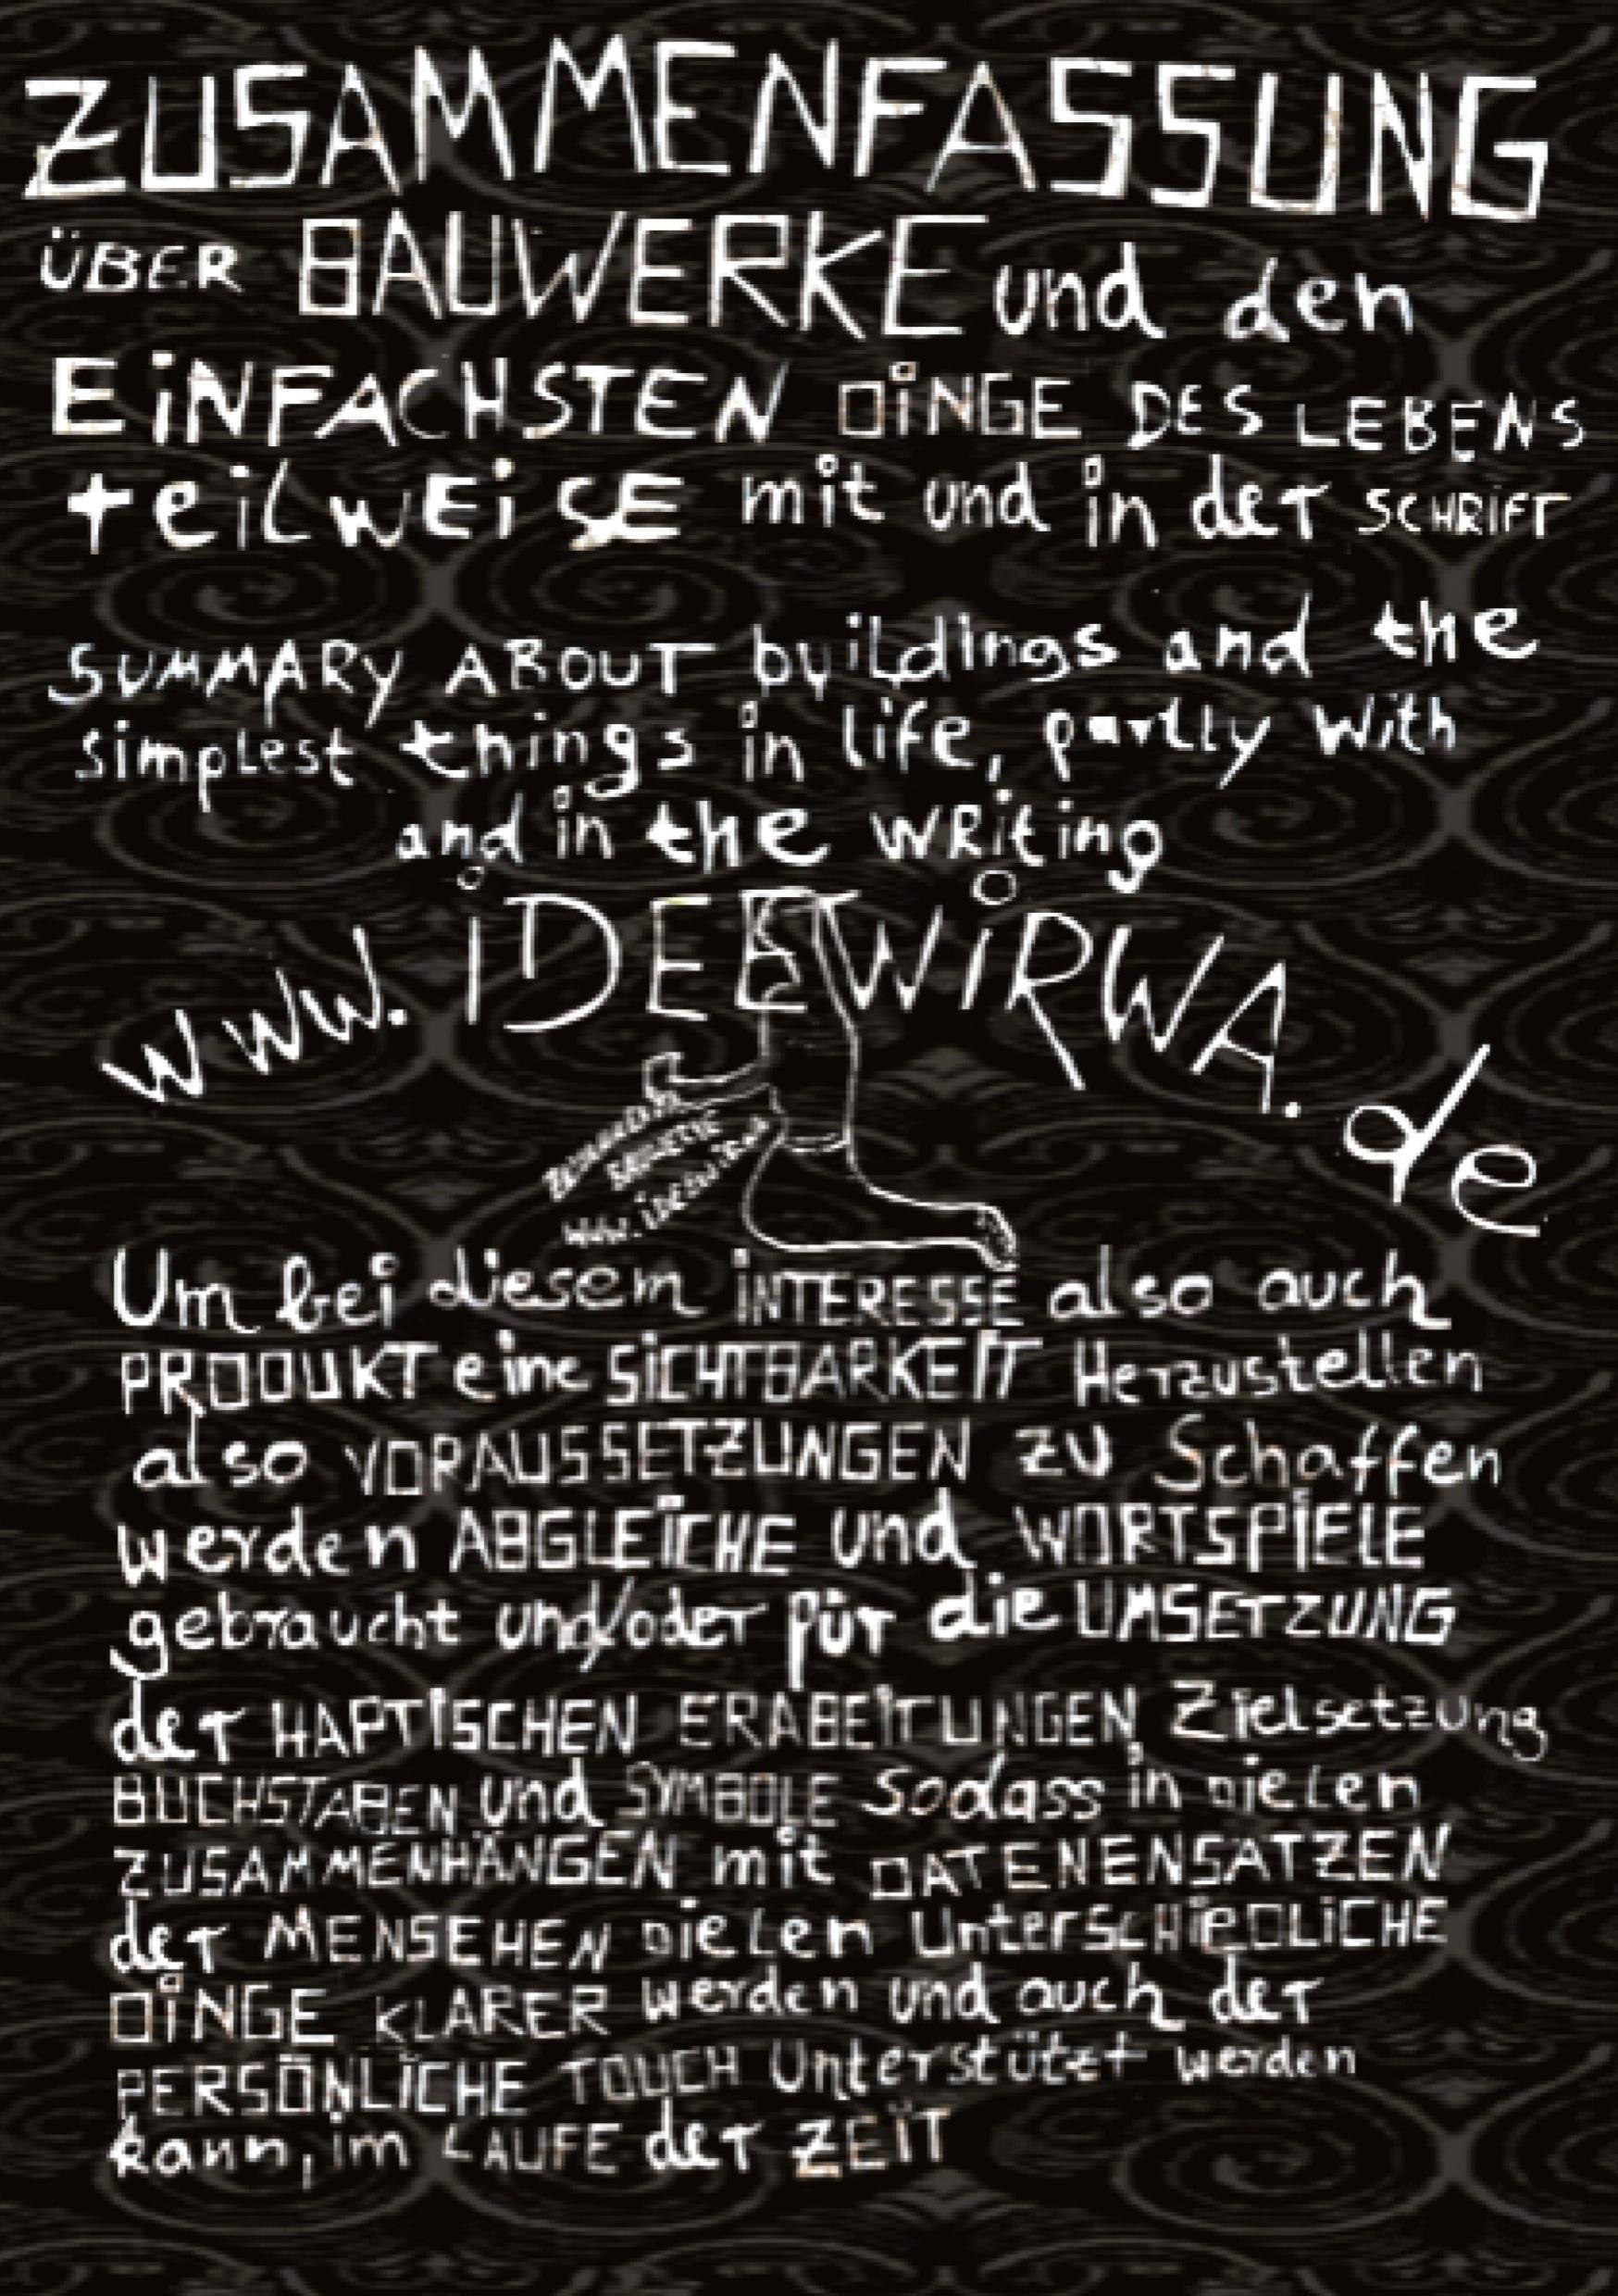 ZUSAMMENFASSUNG
ÜBER BAUWERKE und den
EiNFACHSTEN DiNGE DES LEBENS
teilWEiSE mit und in der SCHRiFT
SUMMARY ABOUT buildings and the
simplest things in life, partly with
and in the WRiting
www.iDEEWiRWA.de
www.iDEEWiRWA
Um bei diesem iNTERESSE also auch
PRODUKT eine SiCHTBARKEiT Herzustellen
also VORAUSSETZUNGEN zu Schaffen
werden ABGLEiCHE und WORTSPiELE
gebraucht und/oder für die UMSETZUNG
der HAPTiSCHEN ERABEiTUNGEN Zielsetzung
BUCHSTABEN und SYMBOLE Sodass in vielen
ZUSAMMENHÄNGEN mit DATENENSATZEN
der MENSEHEN vielen UnterSCHiEDLiCHE
DiNGE KLARER werden und auch der
PERSÖNLiCHE TOUCH Unterstützt werden
kann, im LAUFE der ZEiT